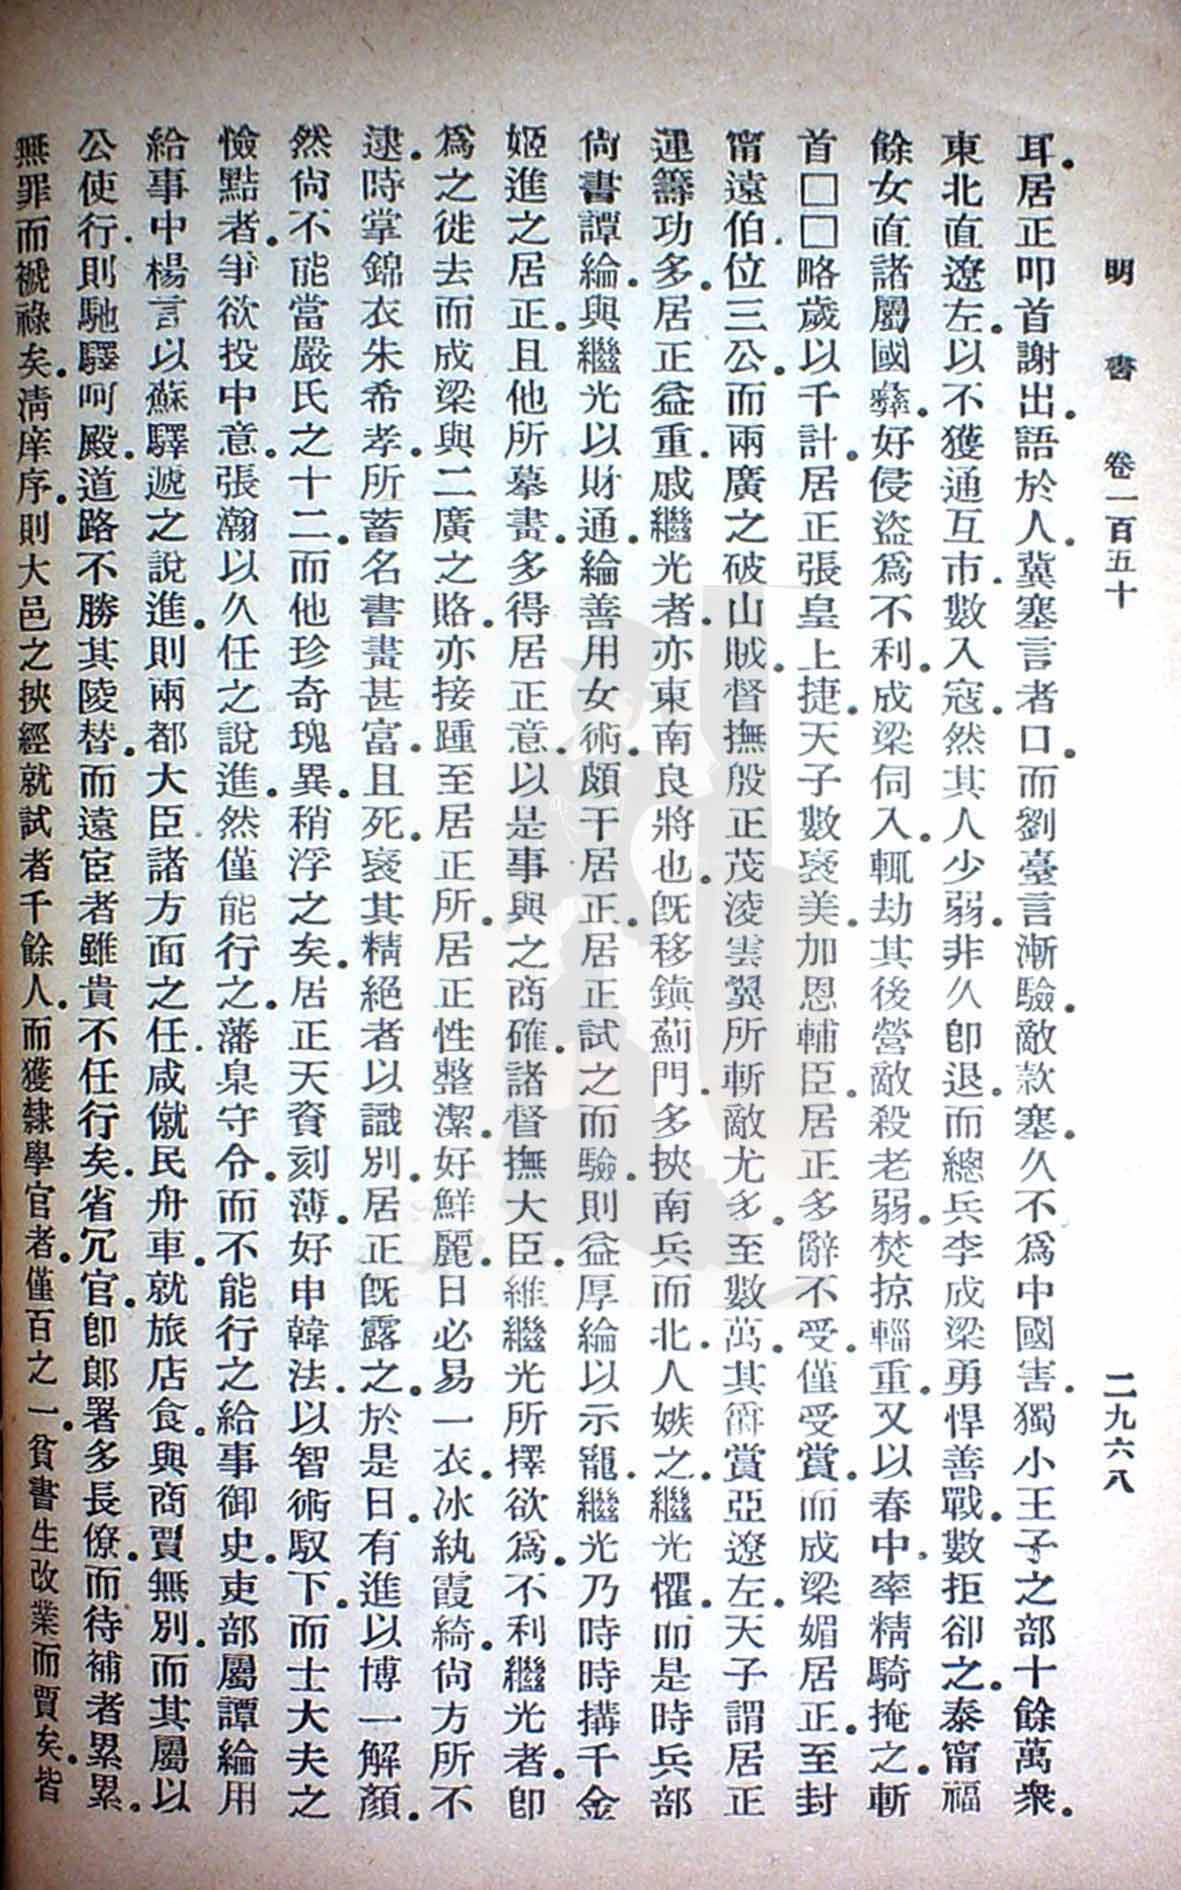 明書 卷一百五十 二九六八
耳。居正叩首謝出。語於人。冀塞言者口。而劉臺言漸驗。敵款塞。久不爲中國害。獨小王子之部十餘萬衆。
東北直遼左。以不獲通互市。數入寇。然其人少弱。非久卽退。而總兵李成梁勇悍善戰。數拒卻之。泰甯福
餘女直諸屬國彝。好侵盜爲不利。成梁伺入。輒劫其後營。敵殺老弱。焚掠輜重。又以春中。率精騎掩之。斬
首□□略歲以千計。居正張皇上捷。天子數褒美。加恩輔臣。居正多辭不受。僅受賞。而成梁媚居正。至封
甯遠伯。位三公。而兩廣之破山賊。督撫殷正茂淩雲翼所斬敵尤多。至數萬。其爵賞亞遼左。天子謂居正
運籌功多。居正益重。戚繼光者。亦東南良將也。旣移鎭薊門。多挾南兵而北。人嫉之。繼光懼。而是時兵部
尙書譚綸。與繼光以財通。綸善用女術。頗干居正。居正試之而驗。則益厚綸以示寵。繼光乃時時搆千金
姬進之居正。且他所墓畫。多得居正意。以是事與之商確。諸督撫大臣。維繼光所擇欲爲。不利繼光者。卽
爲之徙去。而成梁與二廣之賂。亦接踵至居正所。居正性整潔。好鮮麗。日必易一衣。冰紈霞綺。尙方所不
逮。時掌錦衣朱希孝。所蓄名書畫甚富。且死。褒其精絕者以識別。居正旣露之。於是日。有進以博一解顏。
然尙不能當嚴氏之十二。而他珍奇瑰異。稍浮之矣。居正天資刻薄。好申韓法。以智術馭下。而士大夫之
憸點者。爭欲投中意。張瀚以久任之說進。然僅能行之。藩臬守令。而不能行之給事御史。吏部屬譚綸用
給事中楊言以蘇驛遞之說進。則兩都大臣。諸方面之任。咸僦民舟車。就旅店食。與商賈無別。而其屬以
公使行。則馳驛呵殿。道路不勝其陵替。而遠宦者雖貴不任行矣。省冗官。卽郞署多長僚。而待補者累累。
無罪而褫祿矣。淸庠序。則大邑之挾經就試者千餘人。而獲隸學官者。僅百之一。貧書生改業而賈矣。皆